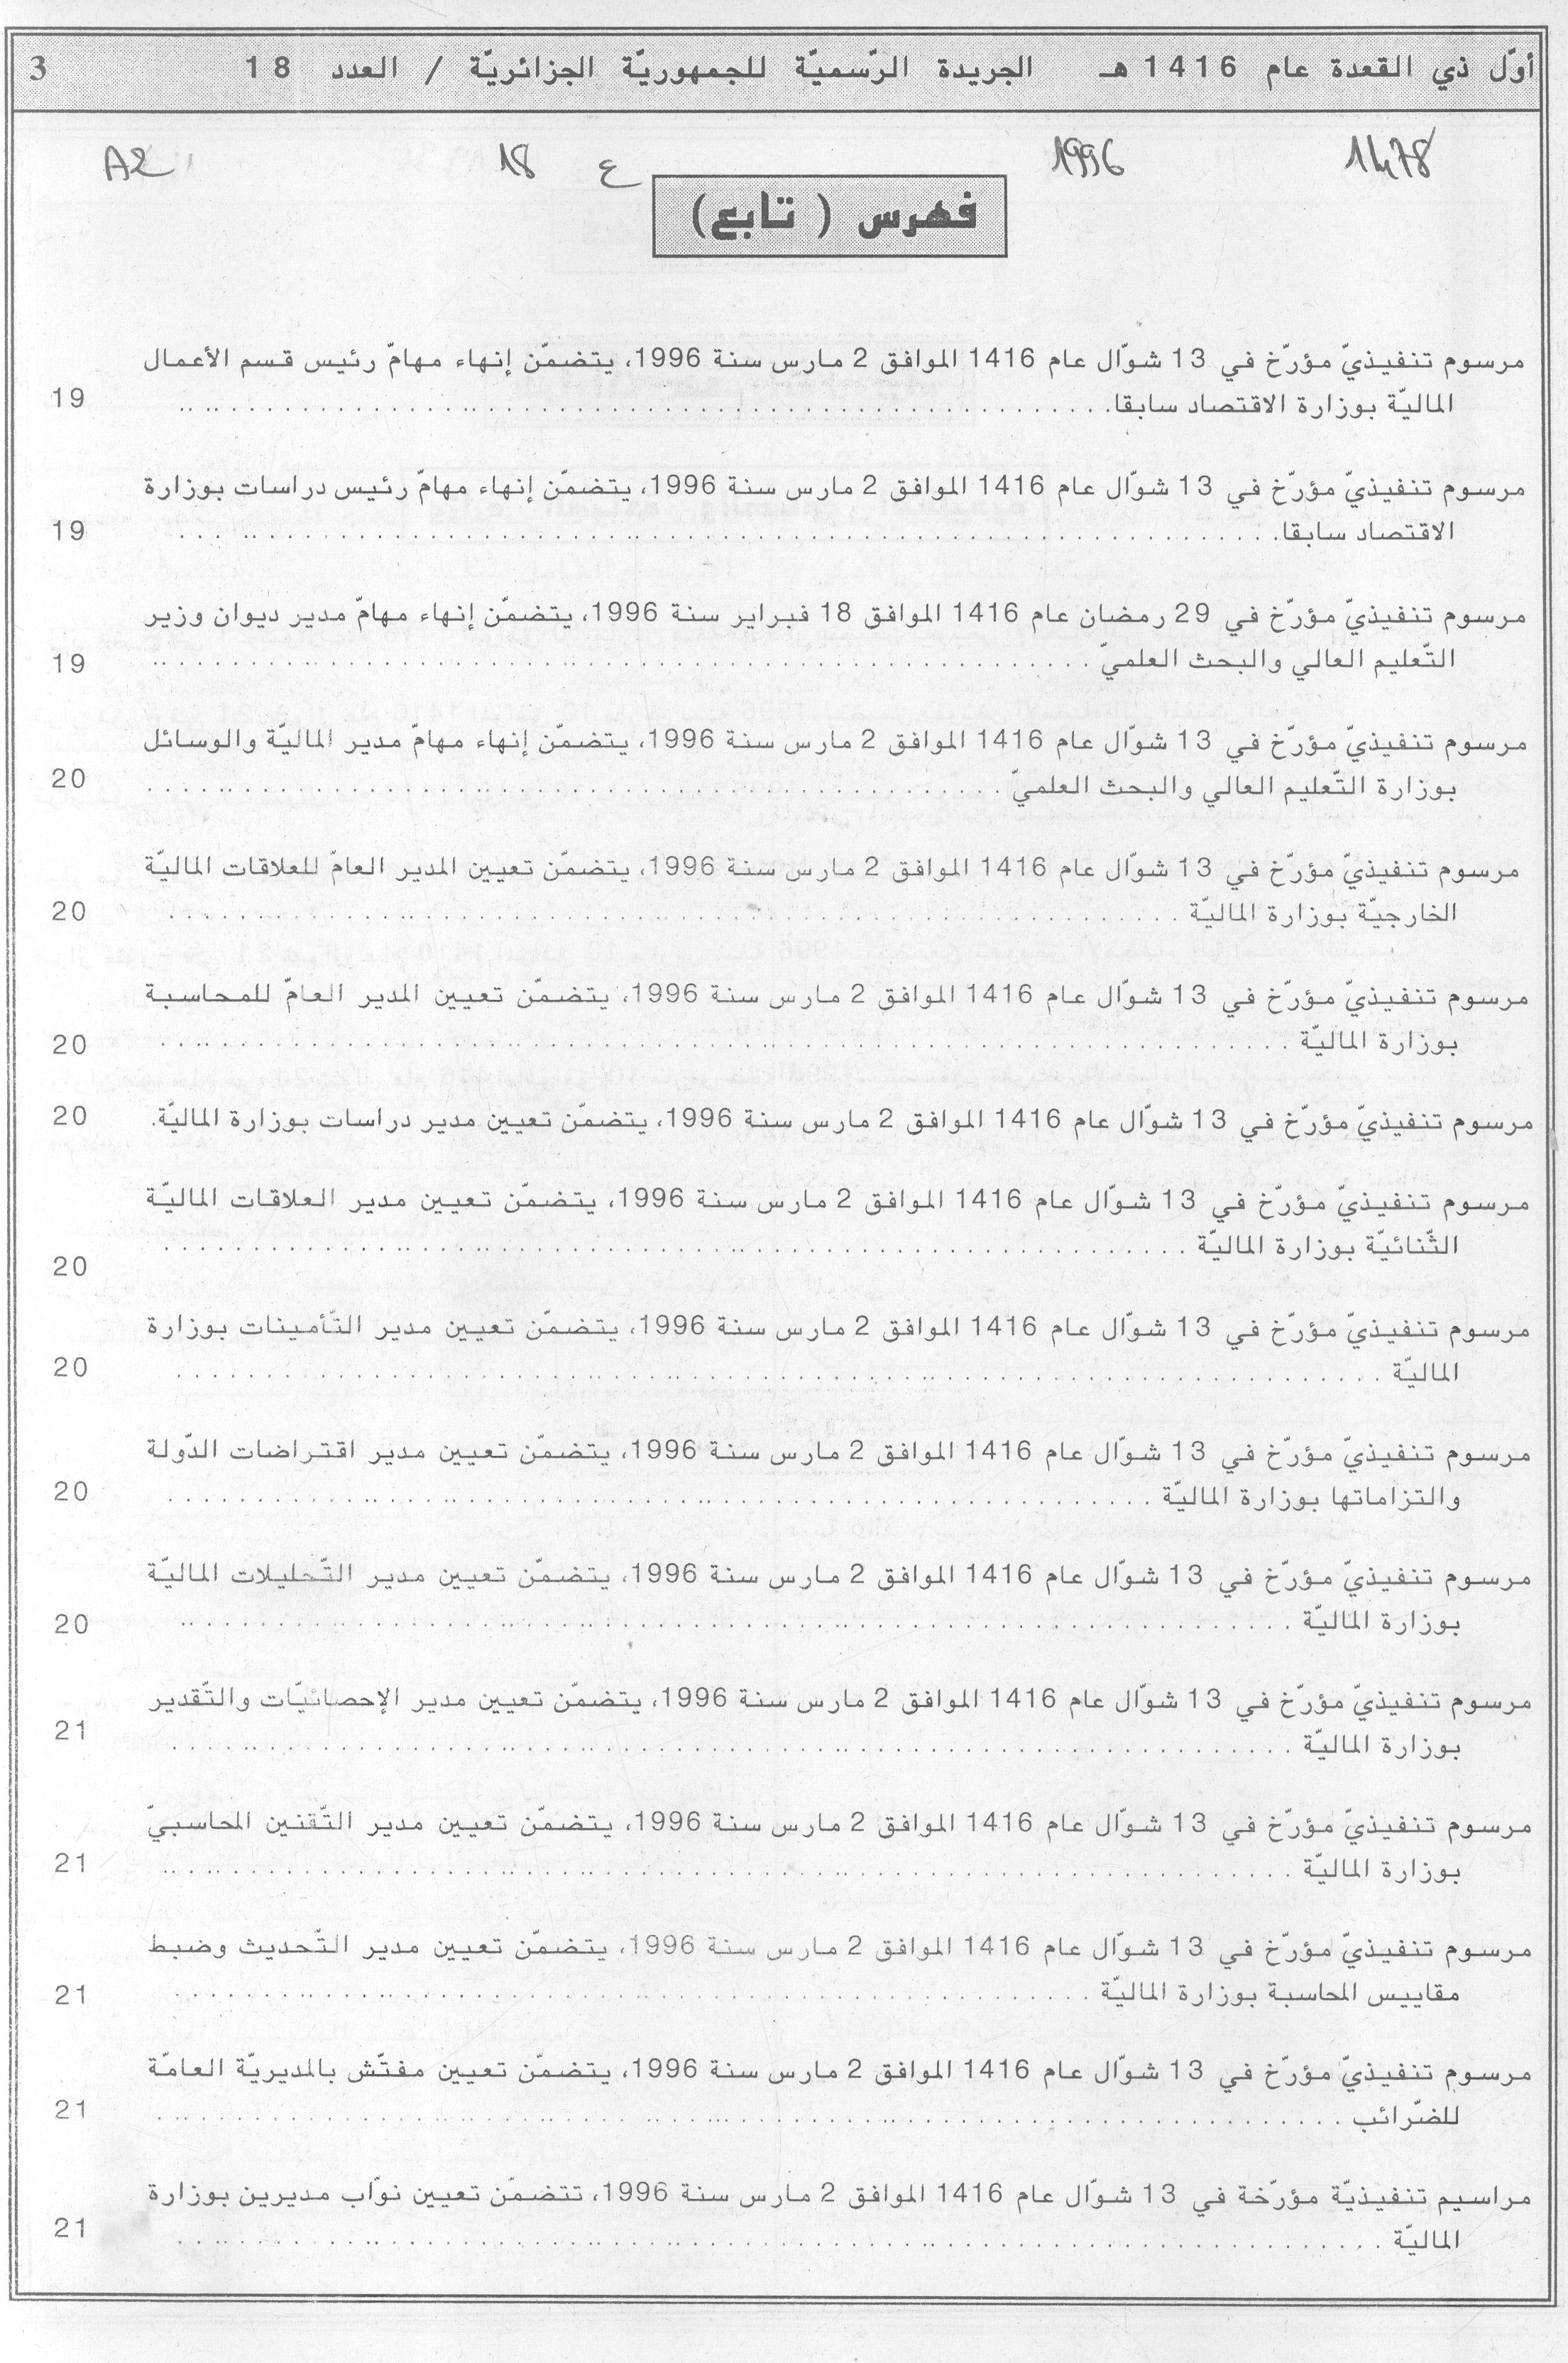 أوّل ذي القعدة عام 1416 هـ الجريدة الرّسميّة للجمهوريّة الجزائريّة / العدد 18 3
1478 1996 ع 18 A2
فهرس ( تابع)
مرسوم تنفيذيّ مؤرّخ في 13 شوّال عام 1416 الموافق 2 مارس سنة 1996، يتضمّن إنهاء مهامّ رئيس قسم الأعمال
الماليّة بوزارة الاقتصاد سابقا. 19
مرسوم تنفيذيّ مؤرّخ في 13 شوّال عام 1416 الموافق 2 مارس سنة 1996، يتضمّن إنهاء مهامّ رئيس دراسات بوزارة
الاقتصاد سابقا. 19
مرسوم تنفيذيّ مؤرّخ في 29 رمضان عام 1416 الموافق 18 فبراير سنة 1996، يتضمّن إنهاء مهامّ مدير ديوان وزير
التّعليم العالي والبحث العلميّ 19
مرسوم تنفيذيّ مؤرّخ في 13 شوّال عام 1416 الموافق 2 مارس سنة 1996، يتضمّن إنهاء مهامّ مدير الماليّة والوسائل
بوزارة التّعليم العالي والبحث العلميّ 20
مرسوم تنفيذيّ مؤرّخ في 13 شوّال عام 1416 الموافق 2 مارس سنة 1996، يتضمّن تعيين المدير العامّ للعلاقات الماليّة
الخارجيّة بوزارة الماليّة 20
مرسوم تنفيذيّ مؤرّخ في 13 شوّال عام 1416 الموافق 2 مارس سنة 1996، يتضمّن تعيين المدير العامّ للمحاسبة
بوزارة الماليّة 20
مرسوم تنفيذيّ مؤرّخ في 13 شوّال عام 1416 الموافق 2 مارس سنة 1996، يتضمّن تعيين مدير دراسات بوزارة الماليّة. 20
مرسوم تنفيذيّ مؤرّخ في 13 شوّال عام 1416 الموافق 2 مارس سنة 1996، يتضمّن تعيين مدير العلاقات الماليّة
الثّنائيّة بوزارة الماليّة 20
مرسوم تنفيذيّ مؤرّخ في 13 شوّال عام 1416 الموافق 2 مارس سنة 1996، يتضمّن تعيين مدير التّأمينات بوزارة
الماليّة 20
مرسوم تنفيذيّ مؤرّخ في 13 شوّال عام 1416 الموافق 2 مارس سنة 1996، يتضمّن تعيين مدير اقتراضات الدّولة
والتزاماتها بوزارة الماليّة 20
مرسوم تنفيذيّ مؤرّخ في 13 شوّال عام 1416 الموافق 2 مارس سنة 1996، يتضمّن تعيين مدير التّحليلات الماليّة
بوزارة الماليّة 20
مرسوم تنفيذيّ مؤرّخ في 13 شوّال عام 1416 الموافق 2 مارس سنة 1996، يتضمّن تعيين مدير الإحصائيّات والتّقدير
بوزارة الماليّة 21
مرسوم تنفيذيّ مؤرّخ في 13 شوّال عام 1416 الموافق 2 مارس سنة 1996، يتضمّن تعيين مدير التّقنين المحاسبيّ
بوزارة الماليّة 21
مرسوم تنفيذيّ مؤرّخ في 13 شوّال عام 1416 الموافق 2 مارس سنة 1996، يتضمّن تعيين مدير التّحديث وضبط
مقاييس المحاسبة بوزارة الماليّة 21
مرسوم تنفيذيّ مؤرّخ في 13 شوّال عام 1416 الموافق 2 مارس سنة 1996، يتضمّن تعيين مفتّش بالمديريّة العامّة
للضّرائب 21
مراسيم تنفيذيّة مؤرّخة في 13 شوّال عام 1416 الموافق 2 مارس سنة 1996، تتضمّن تعيين نوّاب مديرين بوزارة
الماليّة 21